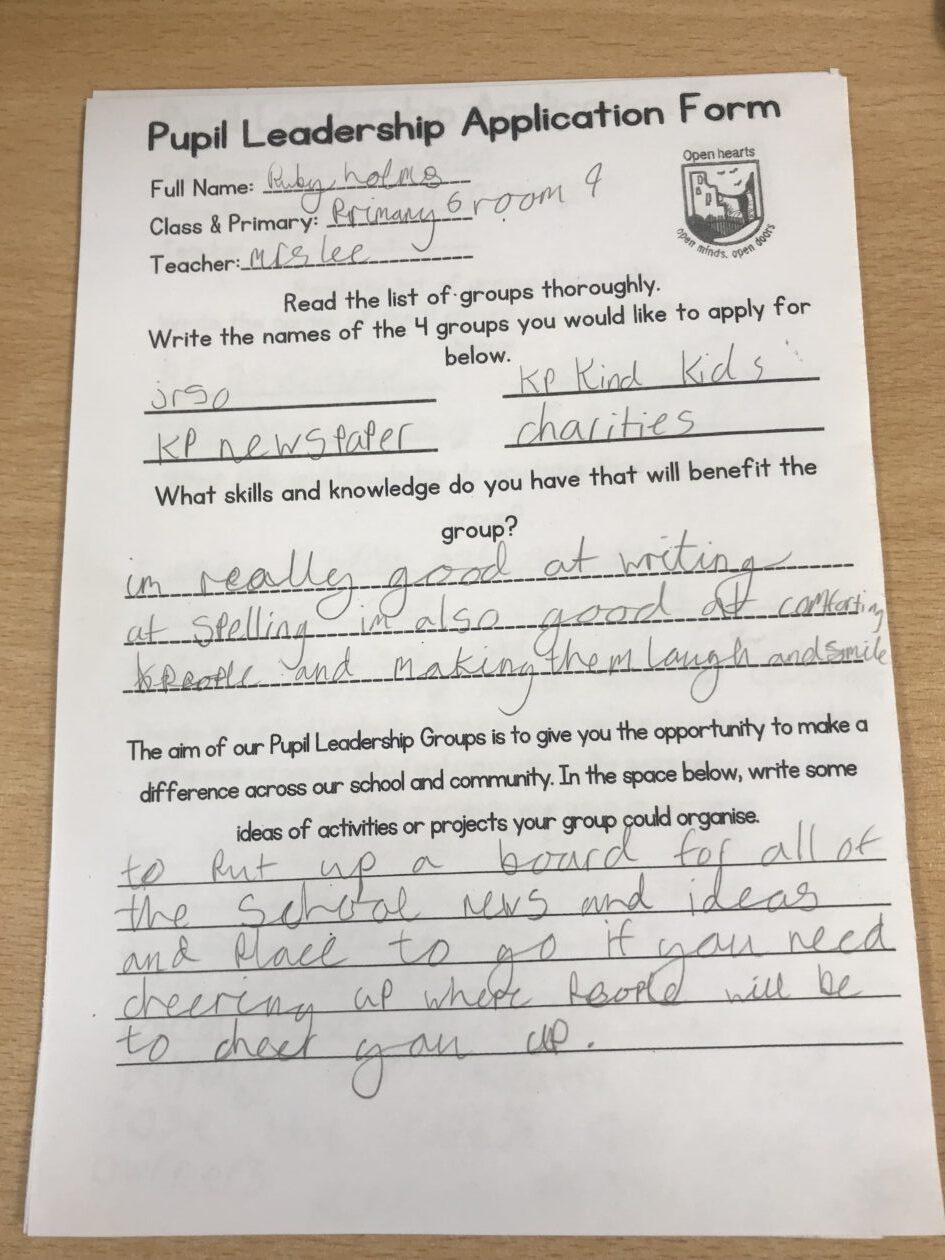 Pupil Leadership Application Form
Open hearts
open minds, open doors
Full Name: Ruby holms
Class & Primary: Primary 6 room 9
Teacher: mrs lee
Read the list of groups thoroughly.
Write the names of the 4 groups you would like to apply for
below.
jrso
KP Kind Kids
KP newspaper
charities
What skills and knowledge do you have that will benefit the
group?
im really good at writing
at spelling im also good at comforting
people and making them laugh and smile
The aim of our Pupil Leadership Groups is to give you the opportunity to make a
difference across our school and community. In the space below, write some
ideas of activities or projects your group could organise.
to put up a board for all of
the school news and ideas
and place to go if you need
cheering up where people will be
to cheer you up.